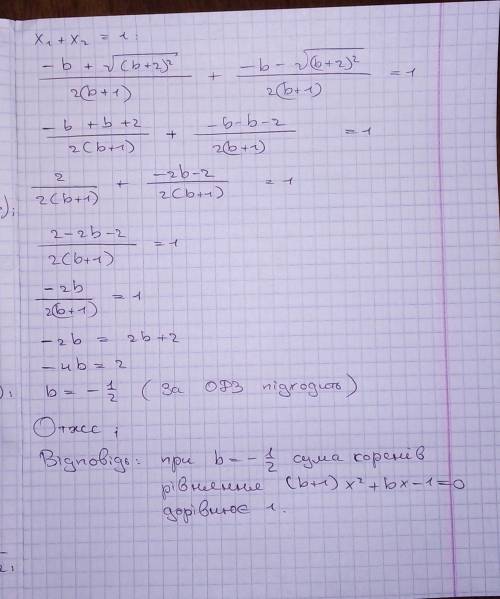 x₁ + x₂ = 1 :
(-b + √(b+2)²)/(2(b+1)) + (-b - √(b+2)²)/(2(b+1)) = 1
(-b + b + 2)/(2(b+1)) + (-b-b-2)/(2(b+1)) = 1
2/(2(b+1)) + (-2b-2)/(2(b+1)) = 1
(2-2b-2)/(2(b+1)) = 1
-2b/(2(b+1)) = 1
-2b = 2b+2
-4b = 2
b = -1/2 (За ОДЗ підходить)
Отже ;
Відповідь: при b = -1/2 сума коренів
рівняння (b+1)x²+bx-1=0
дорівнює 1.